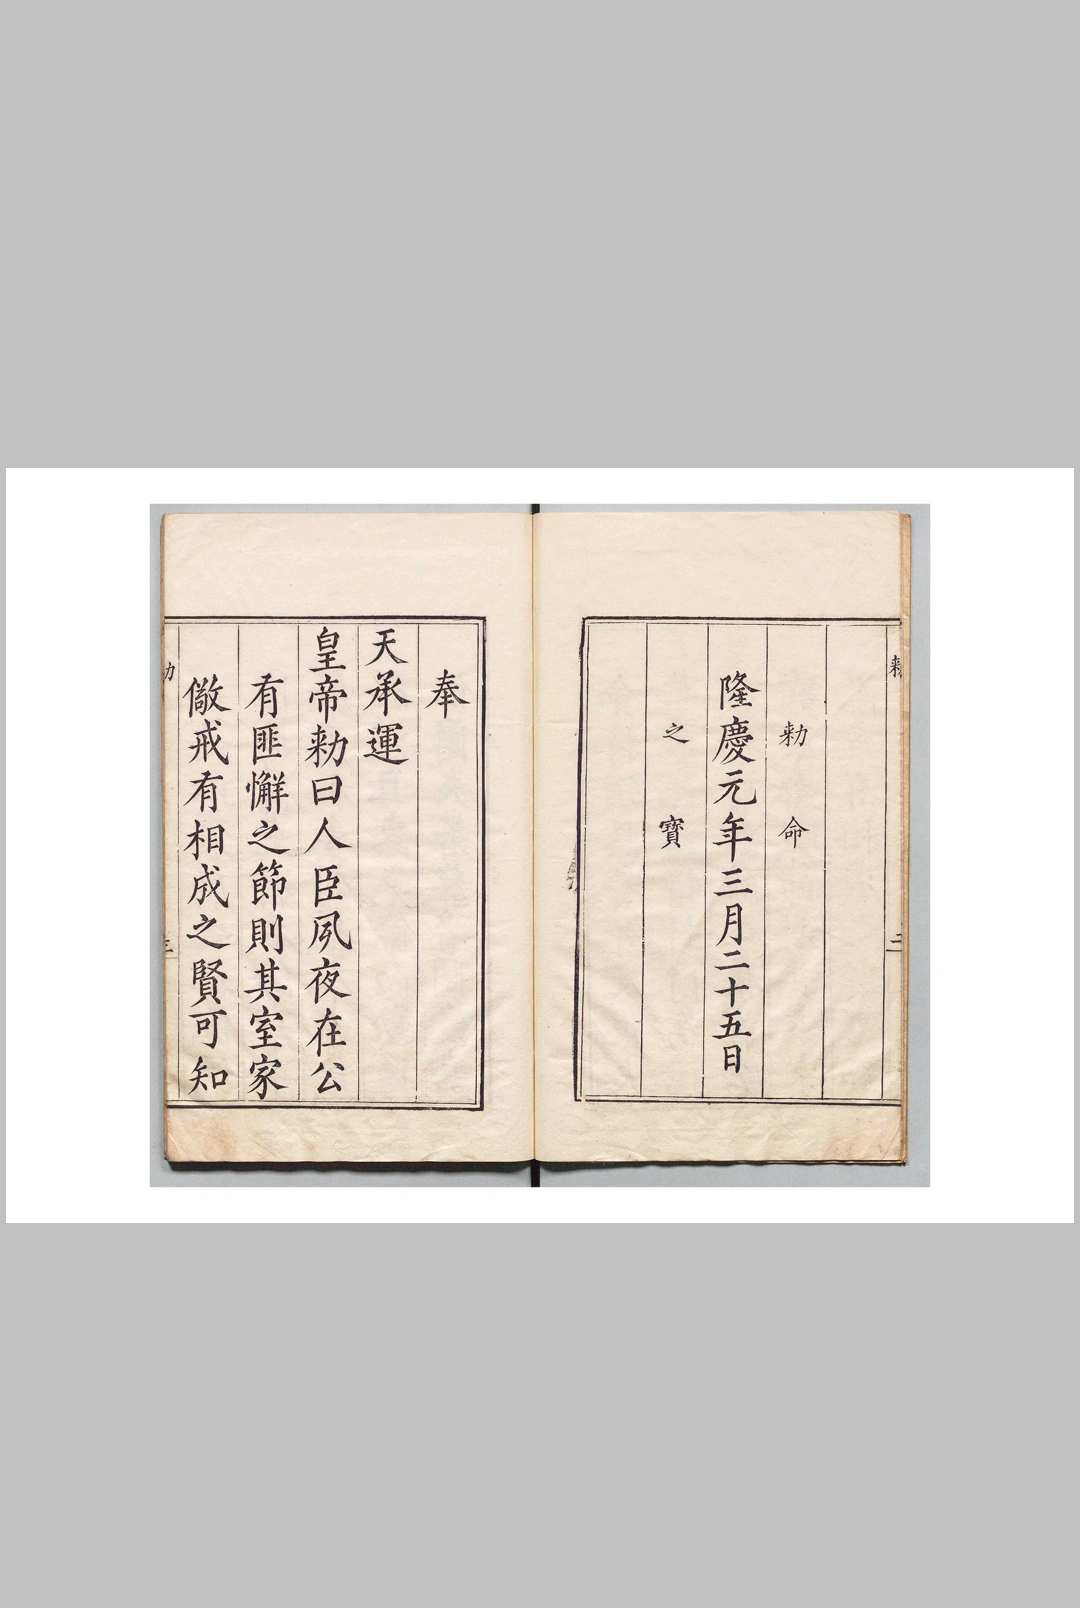 勑命
隆慶元年三月二十五日
之寶
二
奉
天承運
皇帝勑曰人臣夙夜在公
有匪懈之節則其室家
儆戒有相成之賢可知